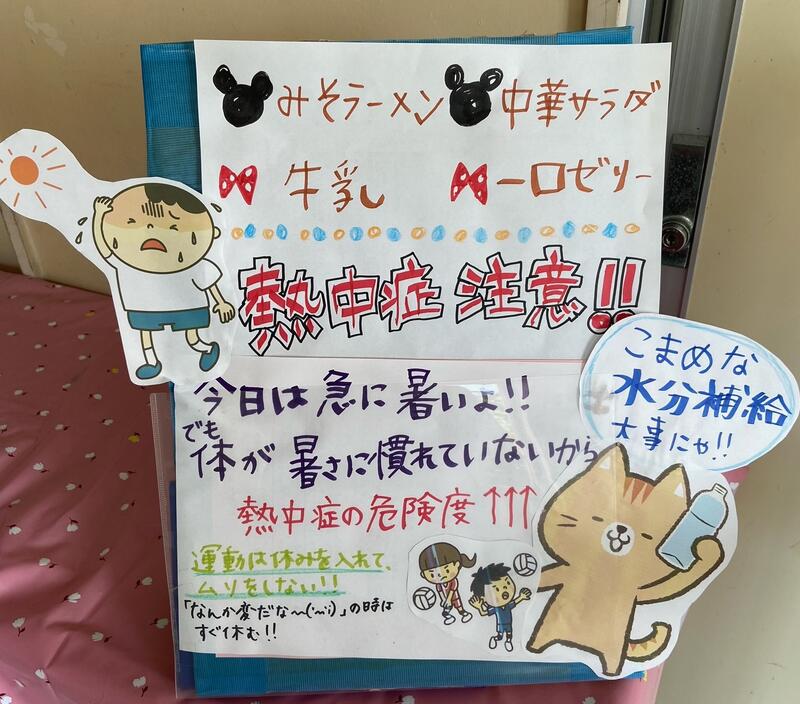 みそラーメン 中華サラダ
牛乳 一口ゼリー
熱中症 注意!!
今日は急に暑いよ!!
でも
体が暑さに慣れていないから
熱中症の危険度↑↑↑
運動は休みを入れて、
ムリをしない!!
「なんか変だな〜(´~`;)」の時は
すぐ休む!!
こまめな
水分補給
大事にゃ!!